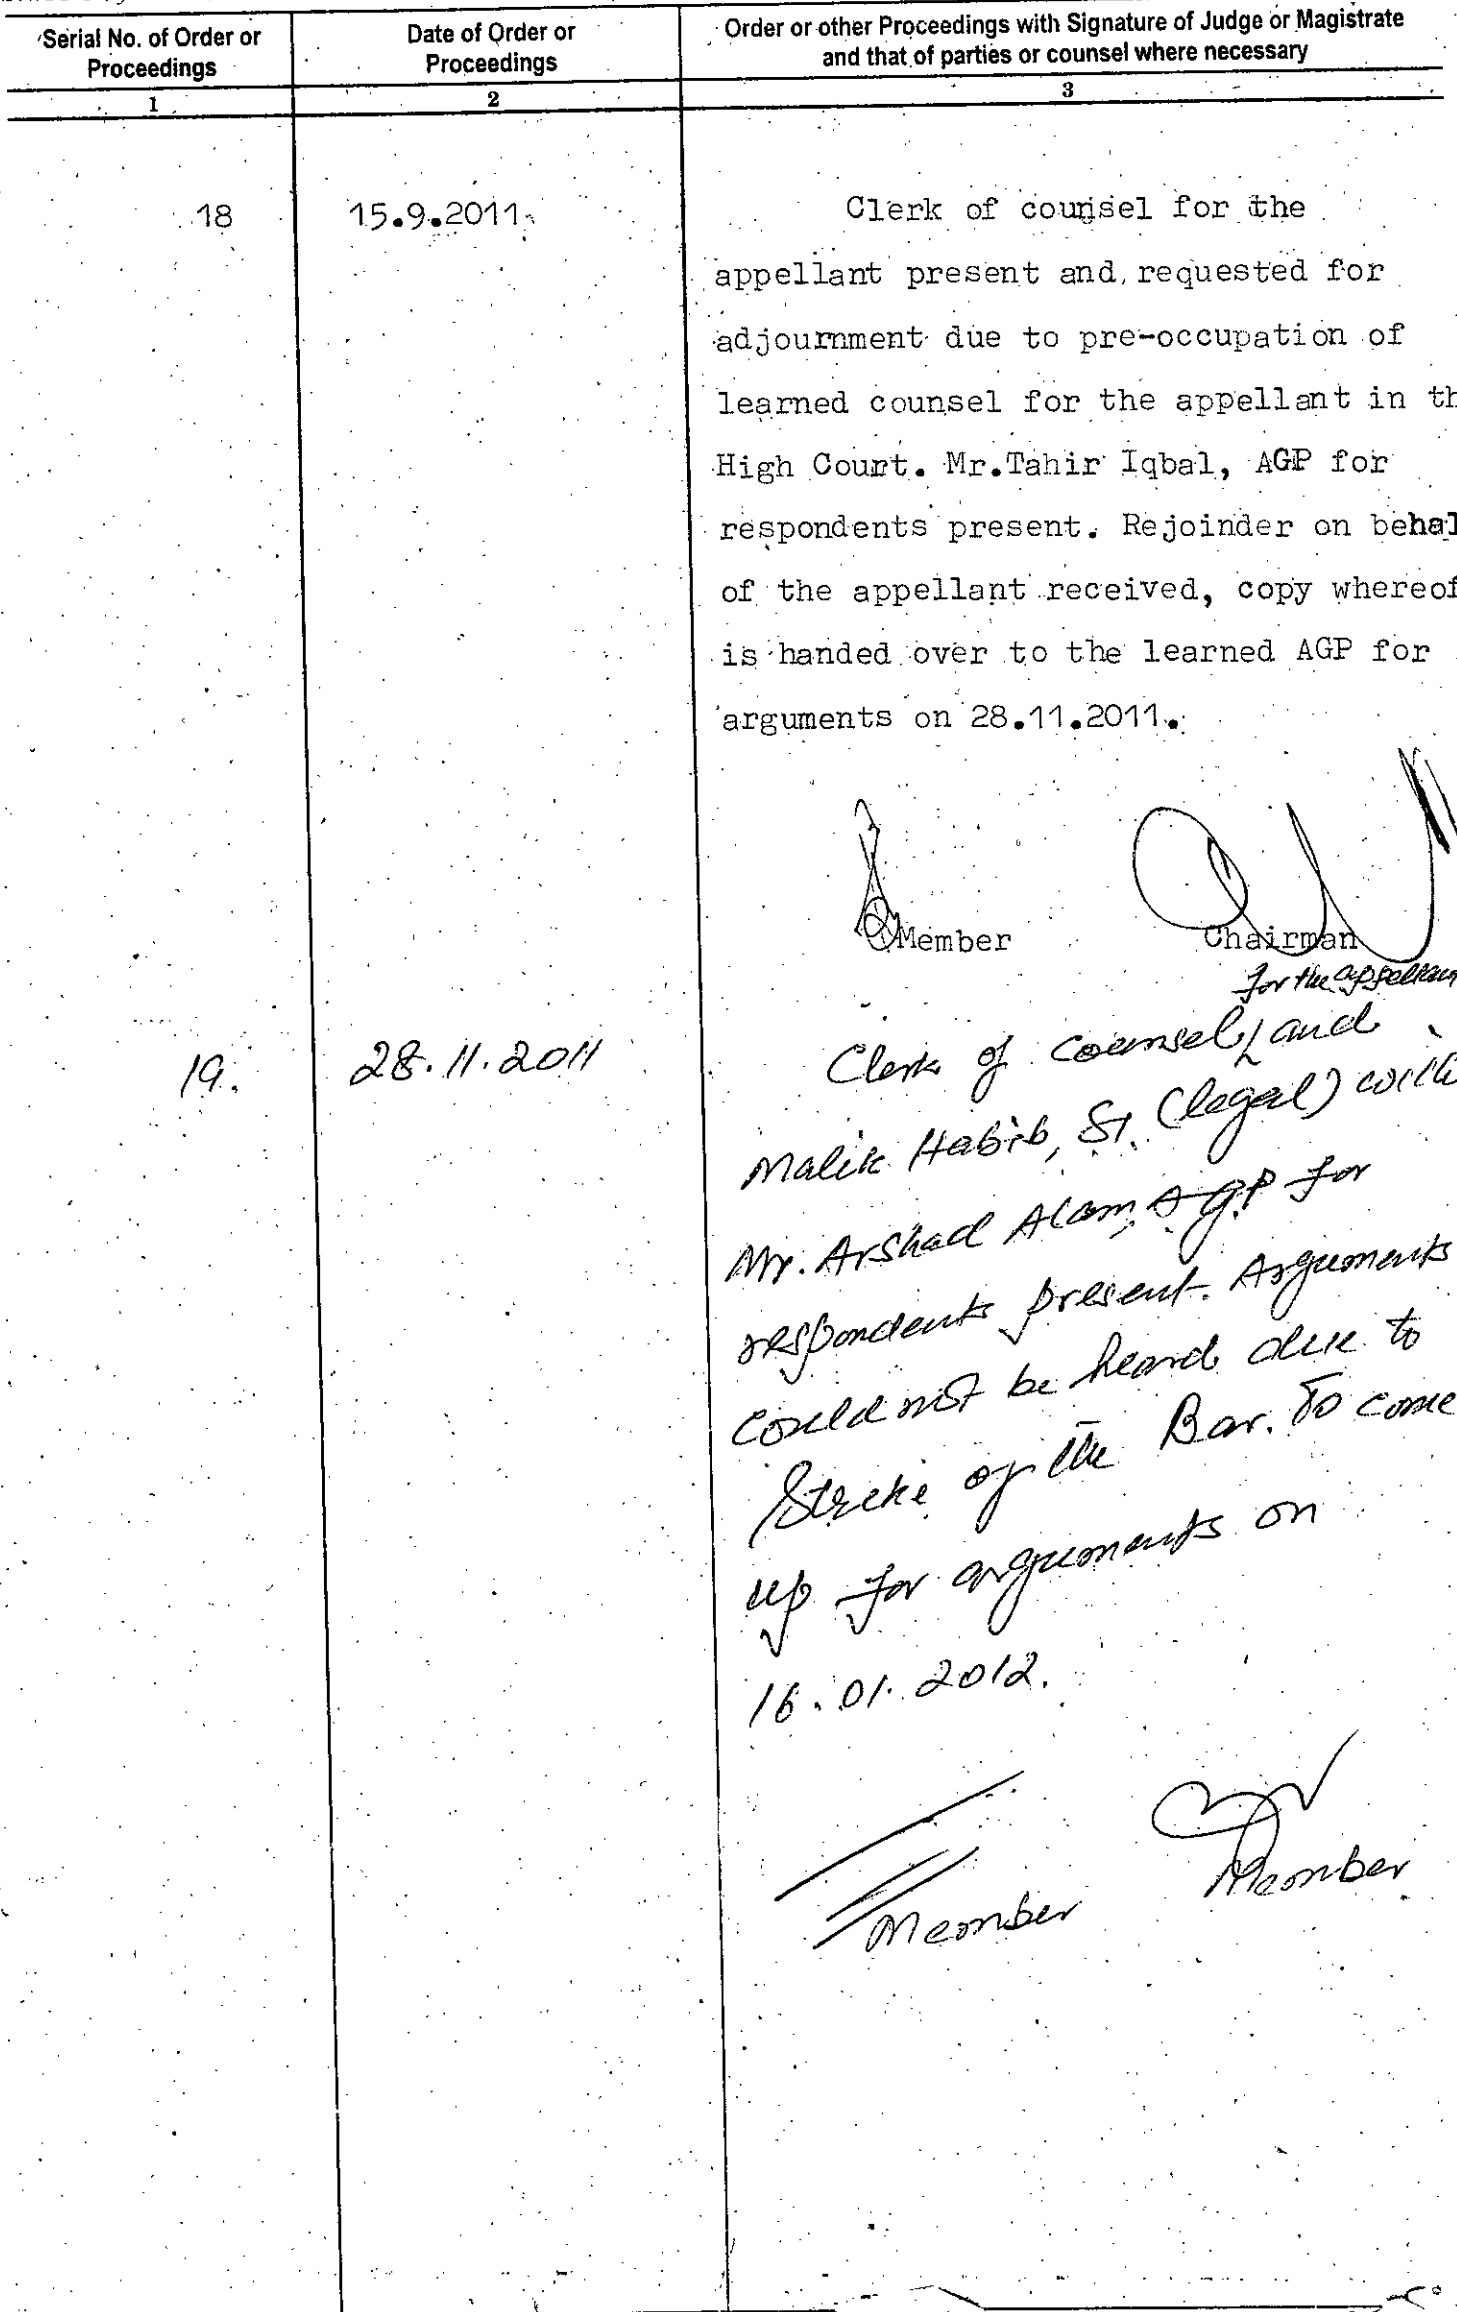 Serial No. of Order or
Proceedings
Date of Order or
Proceedings
Order or other Proceedings with Signature of Judge or Magistrate
and that of parties or counsel where necessary
1
2
3
18
15.9.2011.
Clerk of counsel for the
appellant present and requested for
adjournment due to pre-occupation of
learned counsel for the appellant in th
High Court. Mr.Tahir Iqbal, AGP for
respondents present. Rejoinder on behal
of the appellant received, copy whereof
is handed over to the learned AGP for
arguments on 28.11.2011.
Member
Chairman
for the appellan
19.
28.11.2011
Clerk of counsel and
Malik Habib, SI. (legal) with
Mr. Arshad Alam, AGP for
respondents present. Arguments
could not be heard due to
Strike of the Bar. To come
up for arguments on
16.01.2012.
Member
Member